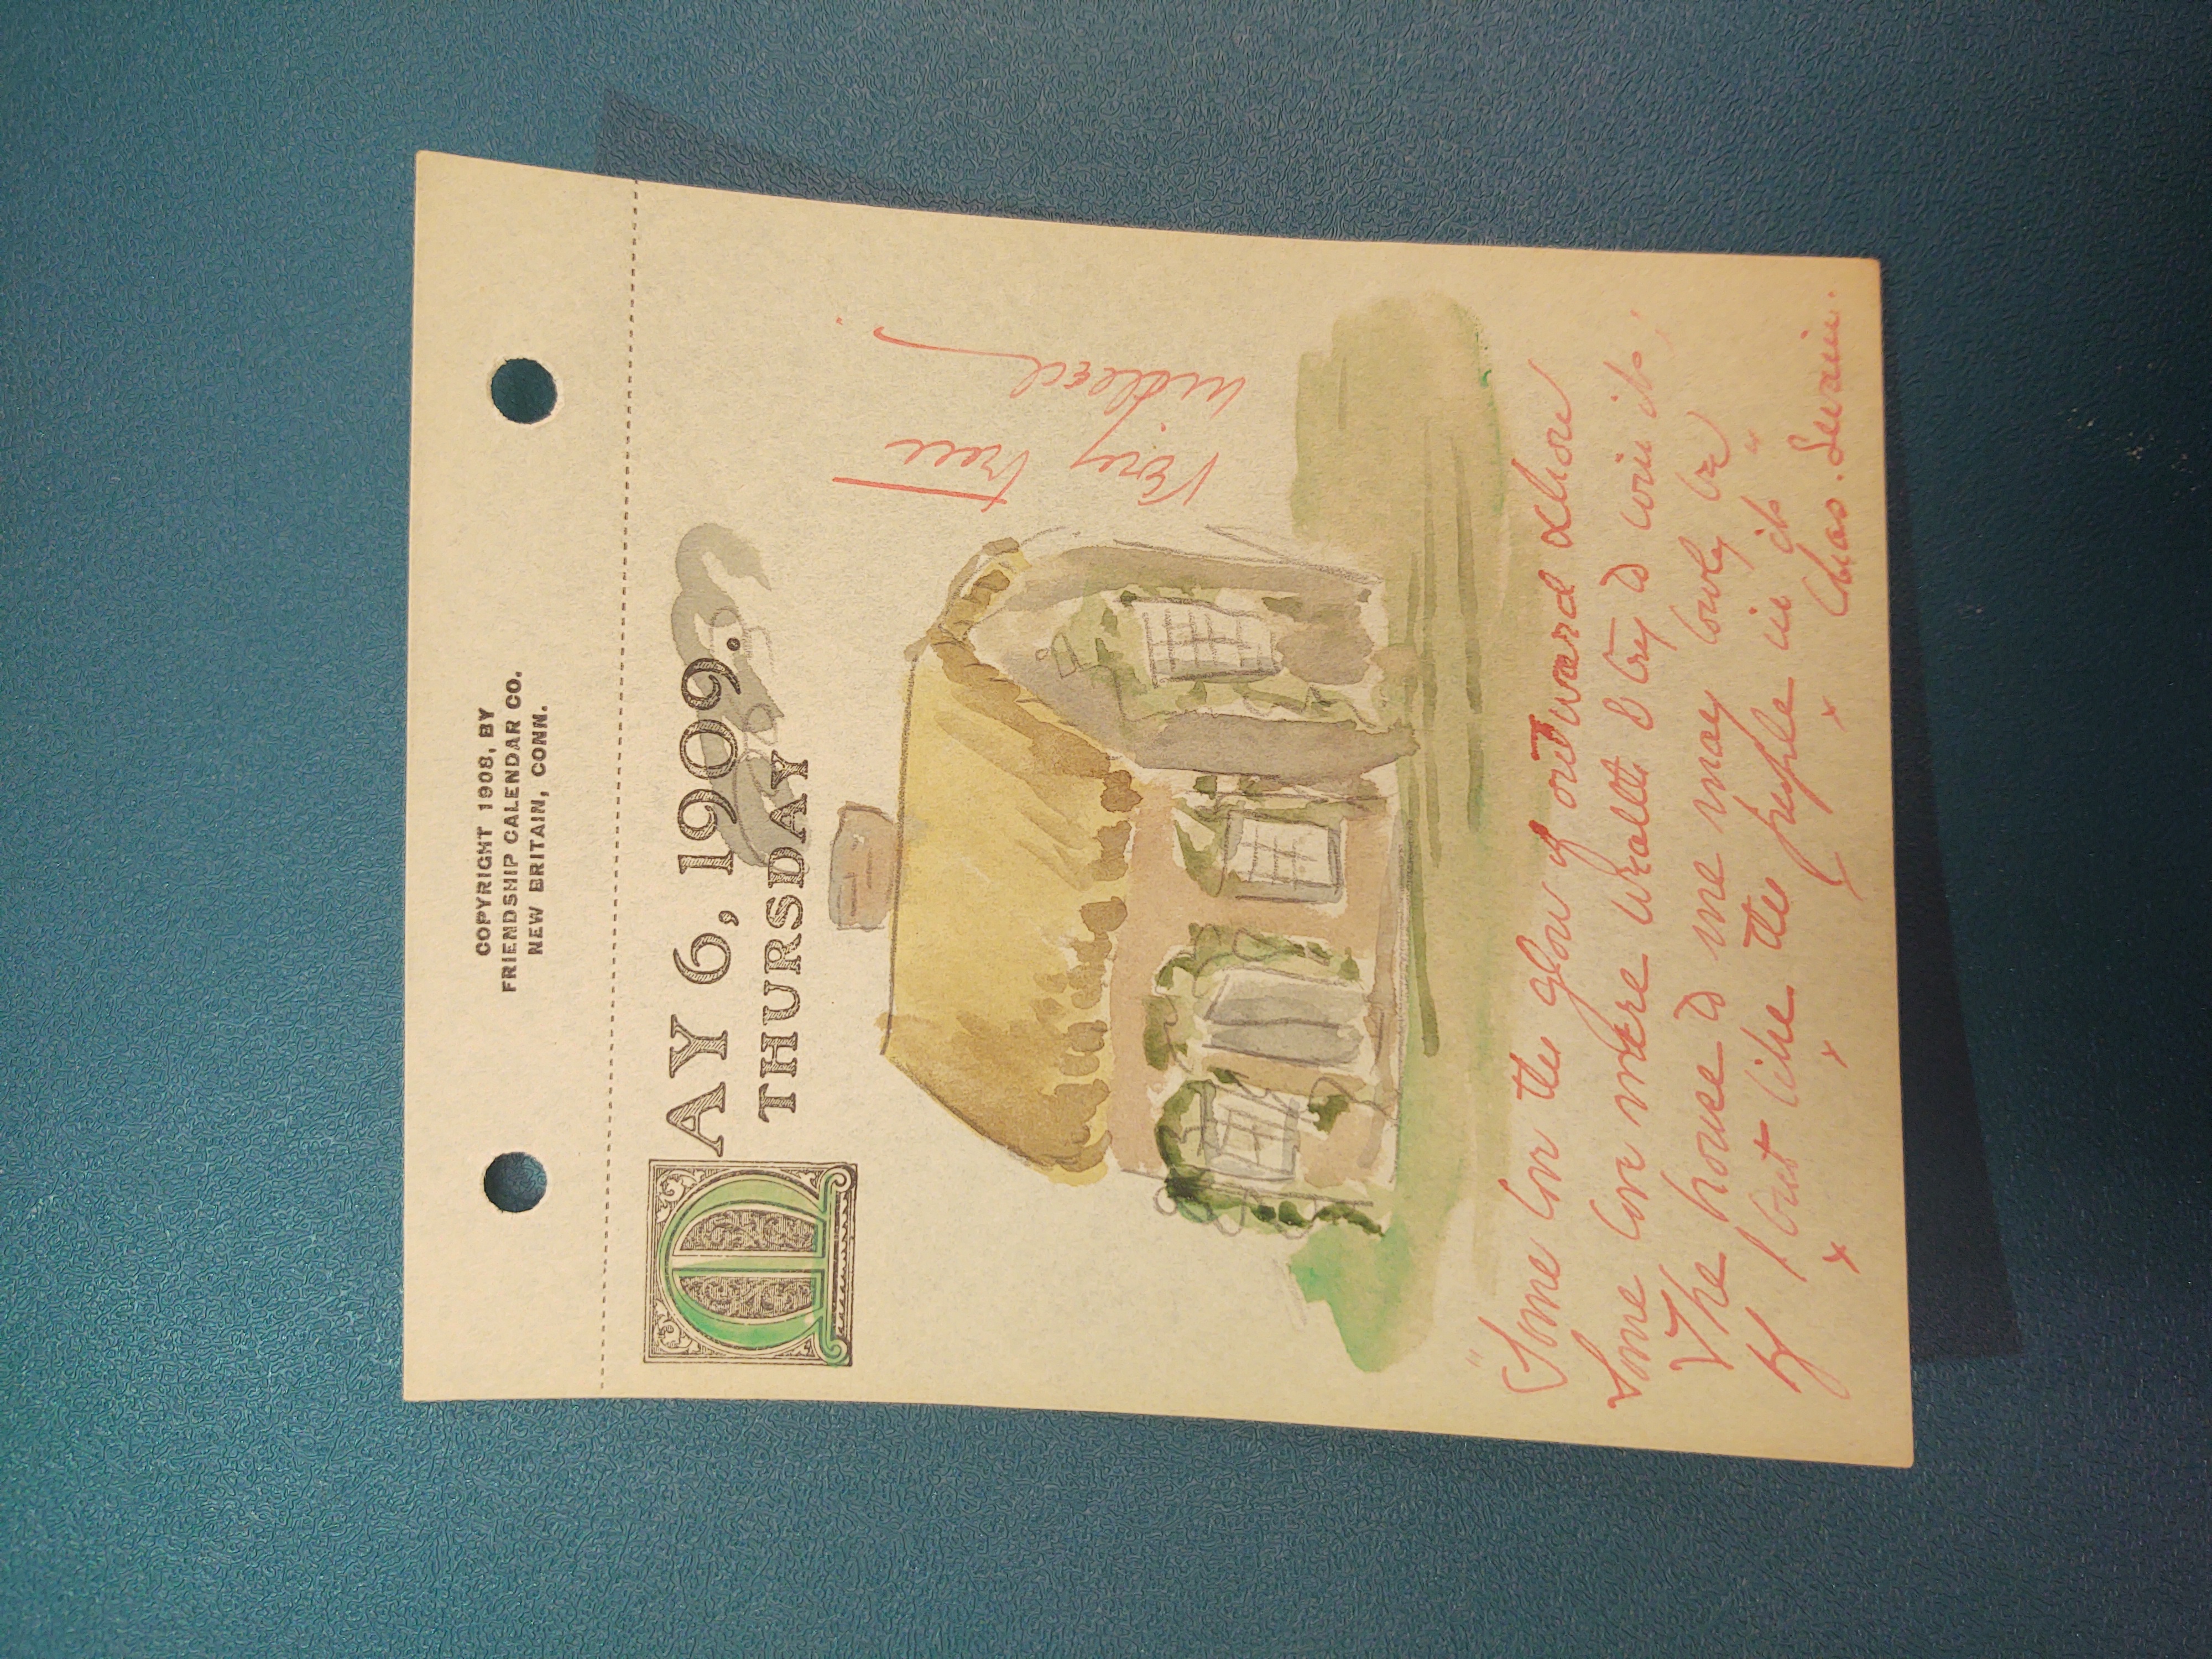 COPYRIGHT 1908, BY
FRIENDSHIP CALENDAR CO.
NEW BRITAIN, CONN.
MAY 6, 1909.
THURSDAY
Very true
indeed.
"Some love the glow of outward show
Some love mere wealth & try to win it;
The house to me may lowly be
If I but like the people in it"
x x x x Chas. Swain.